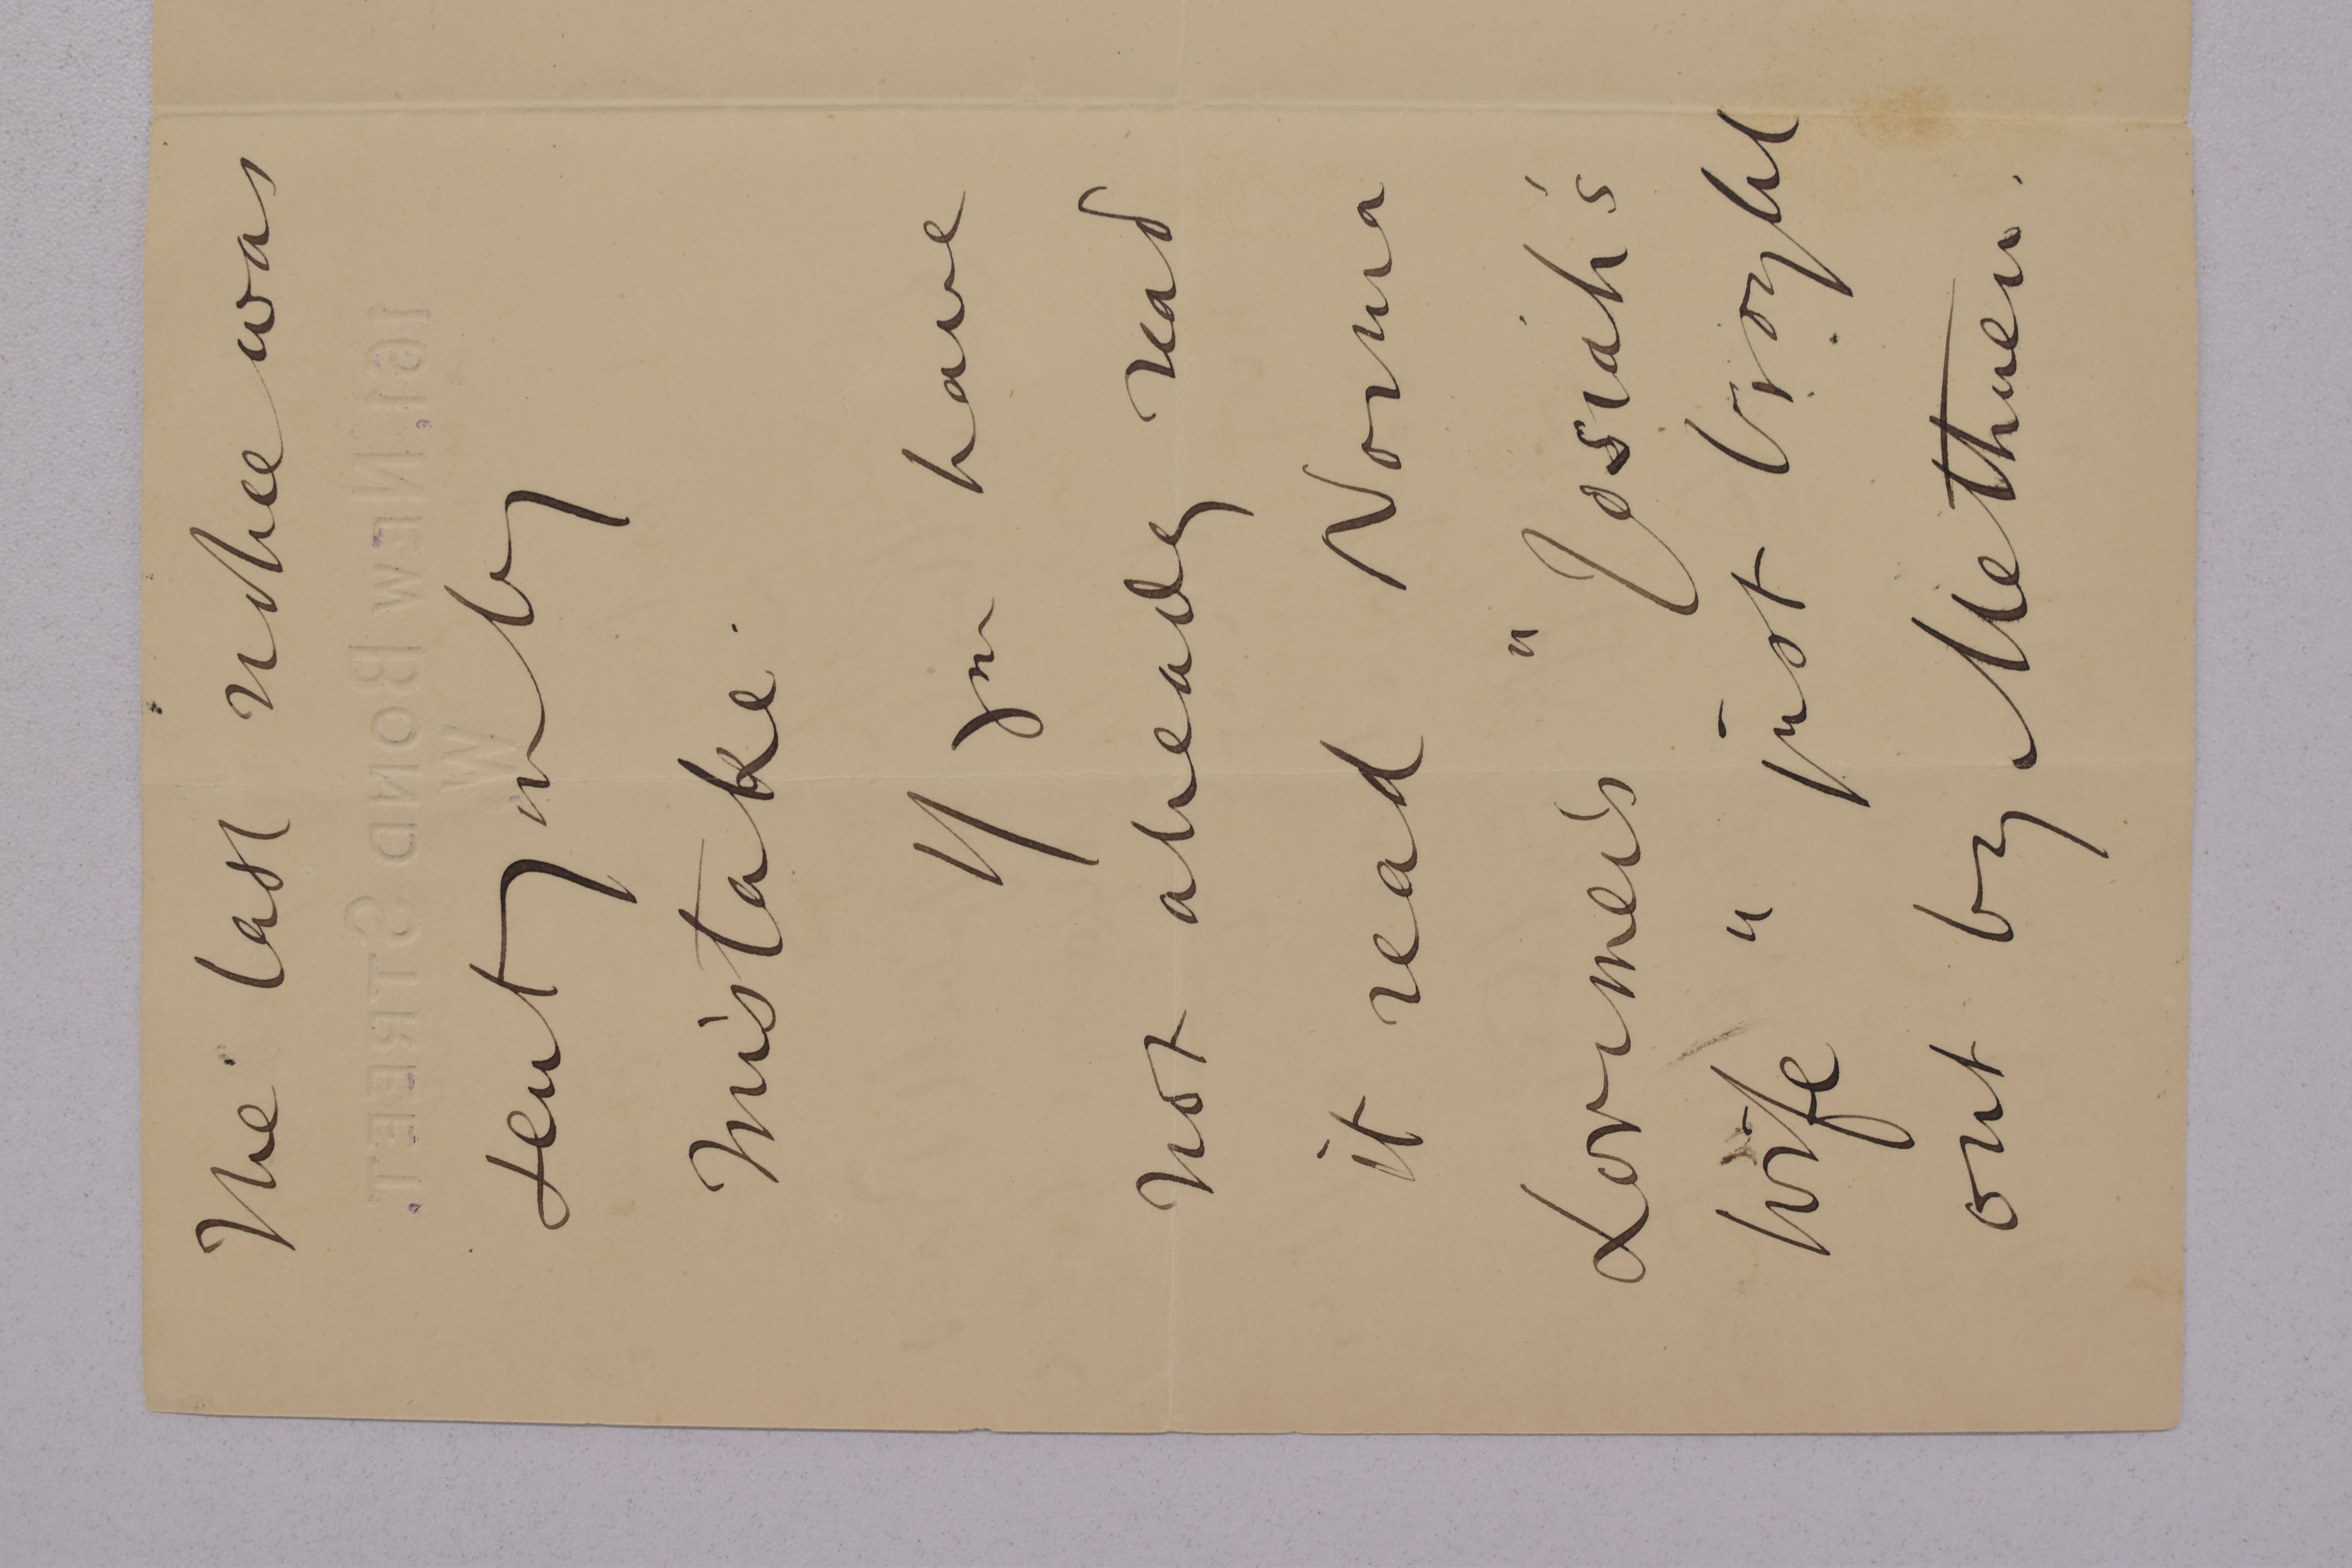 The last notice was
sent you by
mistake.
If you have
not already read
it read Norma
Lorimer's "Josiah's
wife" just brought
out by Methuen.
161, NEW BOND STREET.
W